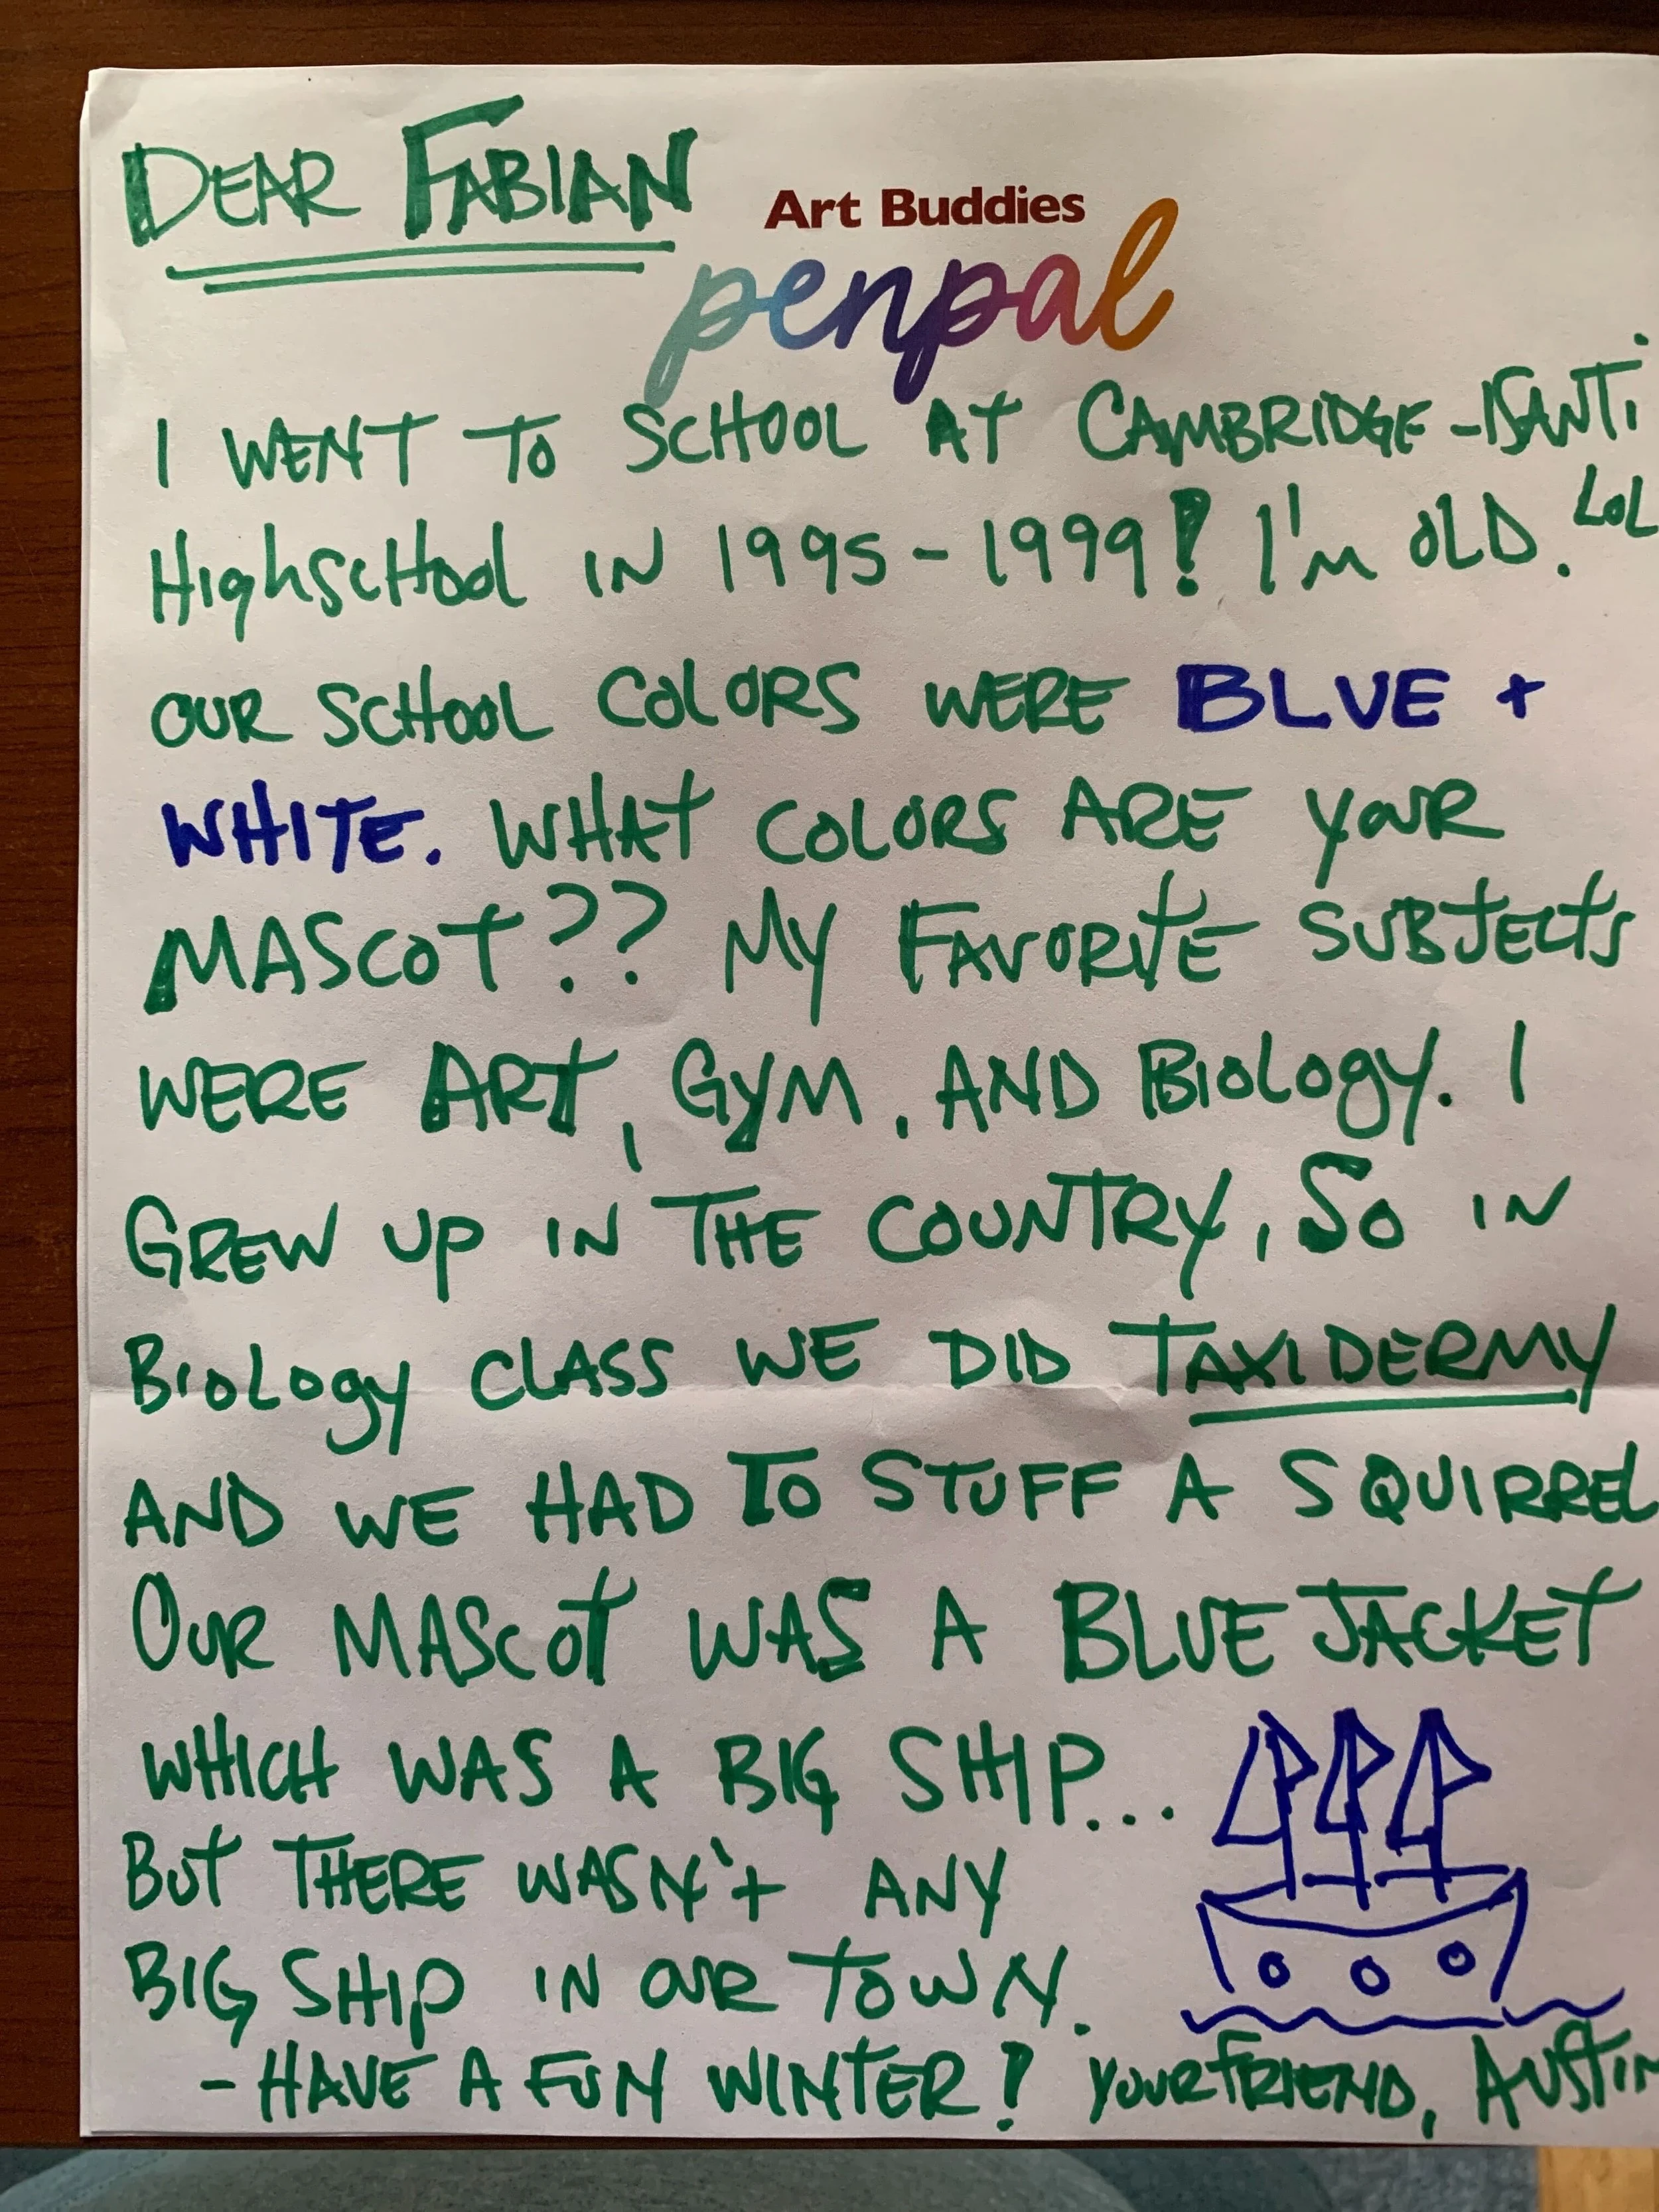 DEAR FABIAN
Art Buddies
penpal
I WENT TO SCHOOL AT CAMBRIDGE-ISANTI
HIGHSCHOOL IN 1995-1999! I'M OLD. LOL
OUR SCHOOL COLORS WERE BLUE +
WHITE. WHAT COLORS ARE YOUR
MASCOT?? MY FAVORITE SUBJECTS
WERE ART, GYM, AND BIOLOGY. I
GREW UP IN THE COUNTRY, SO IN
BIOLOGY CLASS WE DID TAXIDERMY
AND WE HAD TO STUFF A SQUIRREL
OUR MASCOT WAS A BLUEJACKET
WHICH WAS A BIG SHIP...
BUT THERE WASN'T ANY
BIG SHIP IN OUR TOWN.
- HAVE A FUN WINTER! YOUR FRIEND, AUSTIN